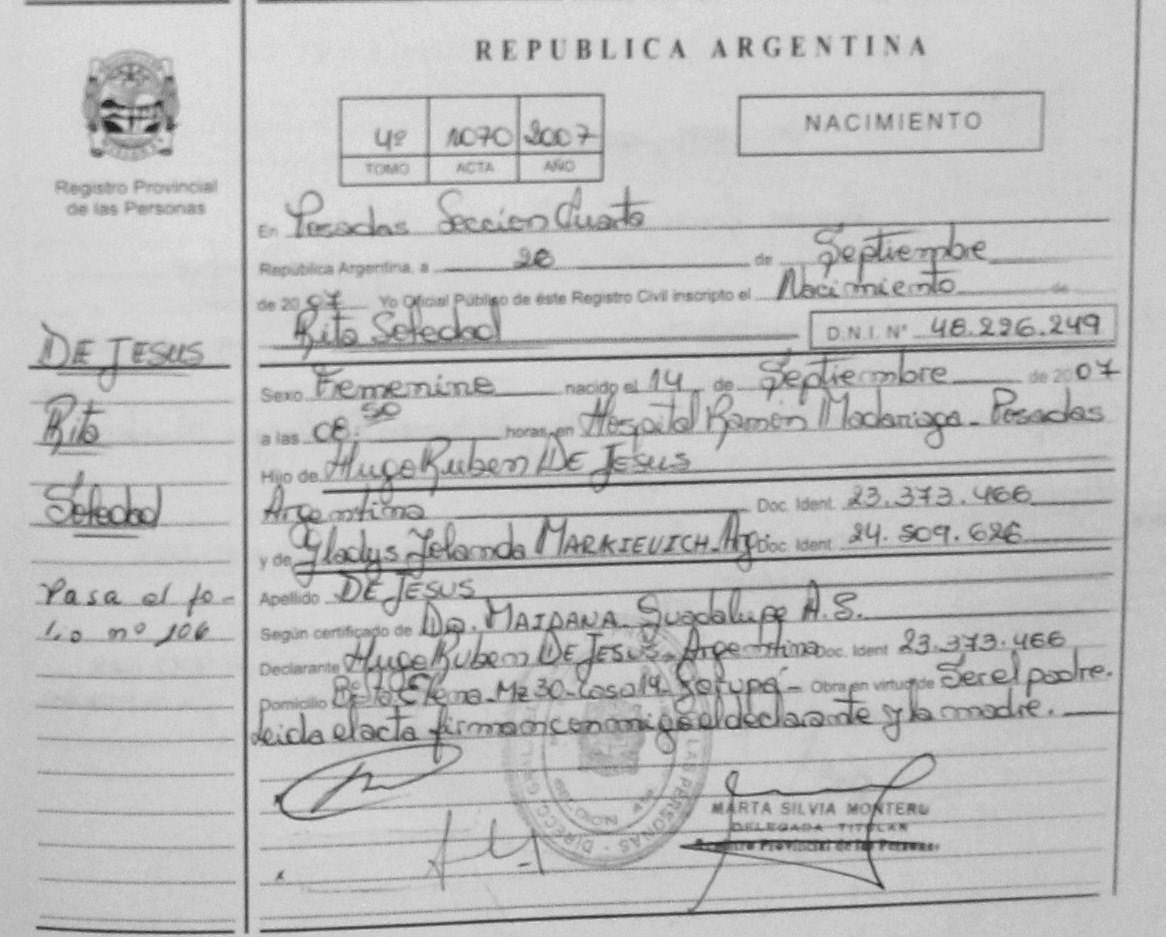 REPUBLICA ARGENTINA
4º 1070 2007
TOMO ACTA AÑO
NACIMIENTO
Registro Provincial
de las Personas
En Posadas Seccion Cuarta
República Argentina, a 20 de Septiembre
de 2007 Yo Oficial Público de éste Registro Civil inscripto el Nacimiento de
Rita Soledad D.N.I. Nº 48.226.249
DE JESUS
Rita
Soledad
Pasa al fo-
lio nº 106
Sexo Femenino nacido el 14 de Septiembre de 2007
a las 08:50 horas, en Hospital Ramón Madariaga - Posadas
Hijo de Hugo Ruben DE JESUS
Argentino Doc. Ident. 23.373.466
y de Gladys Yolanda MARKIEVICH - Arg. Doc. Ident. 24.509.626
Apellido DE JESUS
Según certificado de Da. MAIDANA Guadalupe A.S.
Declarante Hugo Ruben DE JESUS - Argentino Doc. Ident 23.373.466
Domicilio Elena - Mz 30 - Casa 14 - Garupá - Obra en virtud de Ser el padre.
Leida el acta firman conmigo el declarante y la madre.
MARTA SILVIA MONTERO
DELEGADA TITULAR
Registro Provincial de las Personas